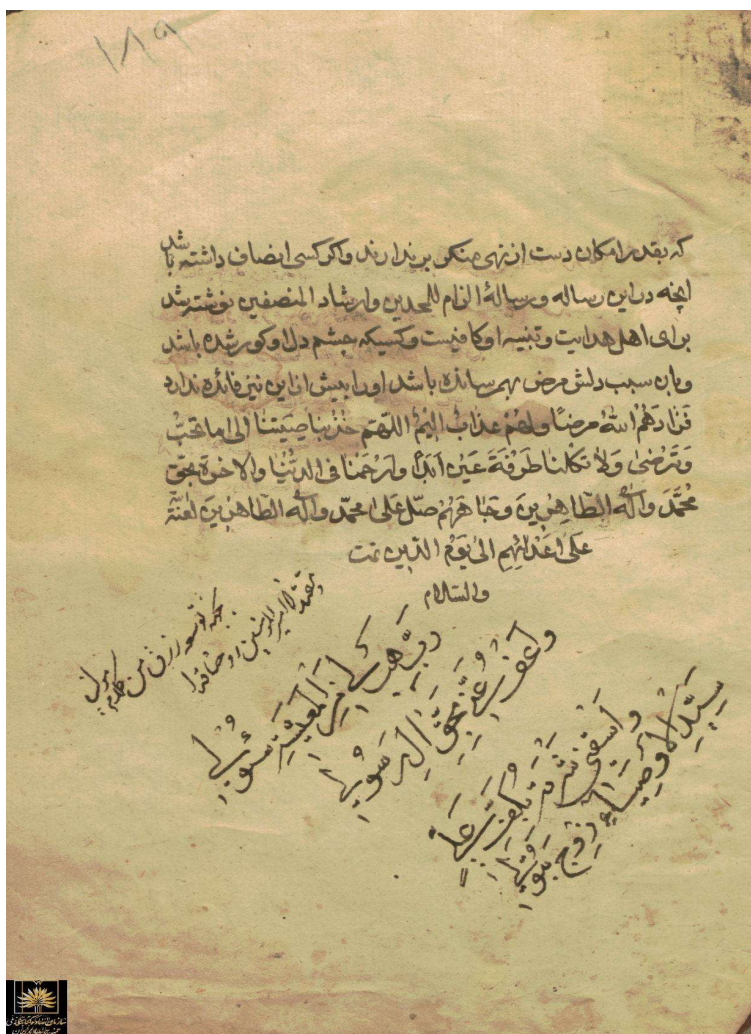 ١٨٩
که بقدر امکان دست از نهی منکر برندارند واکر کسی انصاف داشته باشد
انچه در این رساله و رسالهٔ الزام الملحدین وارشاد المنصفین نوشته شد
برای اهل هدایت و تنبیه او کافیست و کسیکه چشم دل او کور شده باشد
وباین سبب دلش مرض بهم رسانده باشد اورا بیش از این نیز فائده ندارد
فَزٰادَهُمُ اللّٰهُ مرضًا ولهُمْ عَذٰابٌ اَلیٖمٌ اللّٰهمّ خُذْ بنٰاصِیَتنٰا الیٰ مٰا تحبُّ
وَتَرْضیٰ وَلٰا تکلنٰا طَرْفَةَ عَیْنٍ اَبَدًا وارْحَمْنٰا فی الدُّنْیٰا والاٰخرة بحقّ
مُحَمَّدَ وآلِه الطّٰاهِرینَ صلّ عَلیٰ محمّد وآله الطّٰاهرینَ لعنة الله
عَلیٰ اَعْدٰائِهِم الیٰ یَوْمُ الدّینِ تمت
والسّلام
جهة توسعه رزق من
رَبّ هَب لی مِنَ المَعیشَةِ سُؤلی
وَاعْفُ عَنّی بِحَقّ آلِ رَسُولی
وَاسْقِنی شَرْبَةً بِکَفّ عَلیٍّ
سَیّدِ الاَوصیٰاءِ زَوجِ بَتُولی